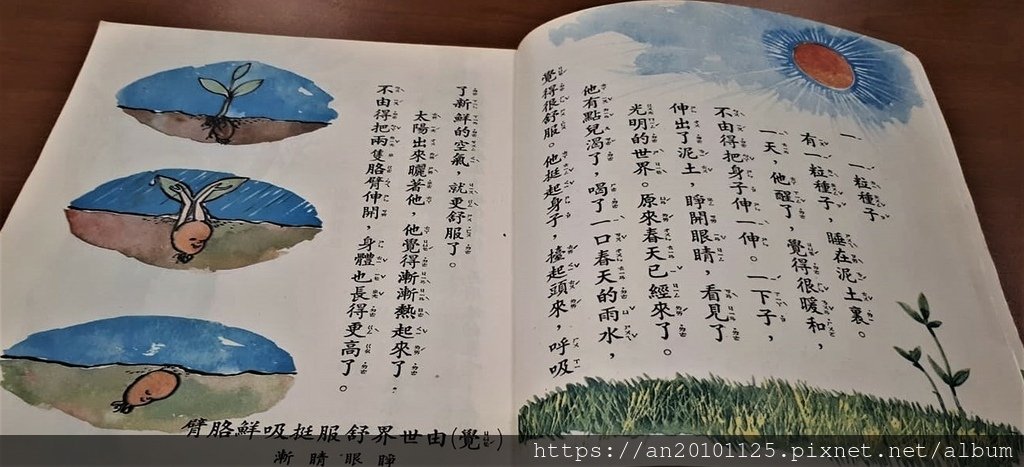 一 一粒種子
有一粒種子，睡在泥土裏。
一天，他醒了，覺得很暖和，
不由得把身子伸一伸。一下子，
伸出了泥土，睜開眼睛，看見了
光明的世界。原來春天已經來了。
他有點兒渴了，喝了一口春天的雨水，
覺得很舒服。他挺起身子，擡起頭來，呼吸
了新鮮的空氣，就更舒服了。
太陽出來曬著他，他覺得漸漸熱起來了，
不由得把兩隻胳臂伸開，身體也長得更高了。
臂胳鮮吸挺服舒界世由(覺)
漸睛眼睡
https://an20101125.pixnet.net/album